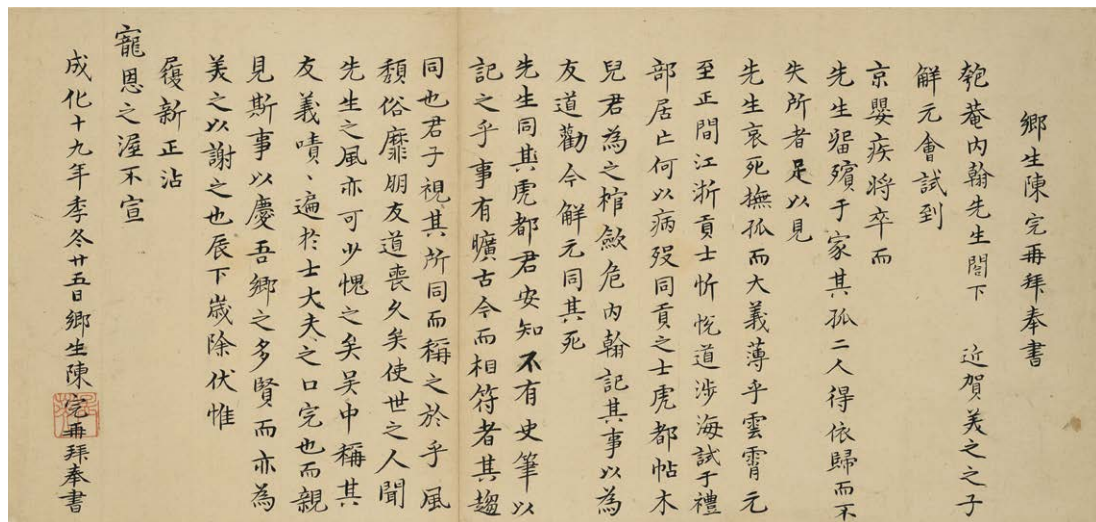 鄉生陳完再拜奉書
匏菴內翰先生閣下 近賀美之之子
解元會試到
京嬰疾將卒而
先生畱殯于家其孤二人得依歸而不
失所者足以見
先生哀死撫孤而大義薄乎雲霄元
至正間江浙貢士忻悅道涉海試于禮
部居亡何以病歿同貢之士虎都帖木
兒君為之棺斂危內翰記其事以為
友道勸今解元同其死
先生同其虎都君安知不有史筆以
記之乎事有曠古今而相符者其趨
同也君子視其所同而稱之於乎風
頹俗靡朋友道喪久矣使世之人聞
先生之風亦可少愧之矣吴中稱其
友義嘖〻遍於士大夫之口完也而親
見斯事以慶吾鄉之多賢而亦為
美之以謝之也辰下歲除伏惟
履新正沾
寵恩之渥不宣
成化十九年季冬廿五日鄉生陳完再拜奉書